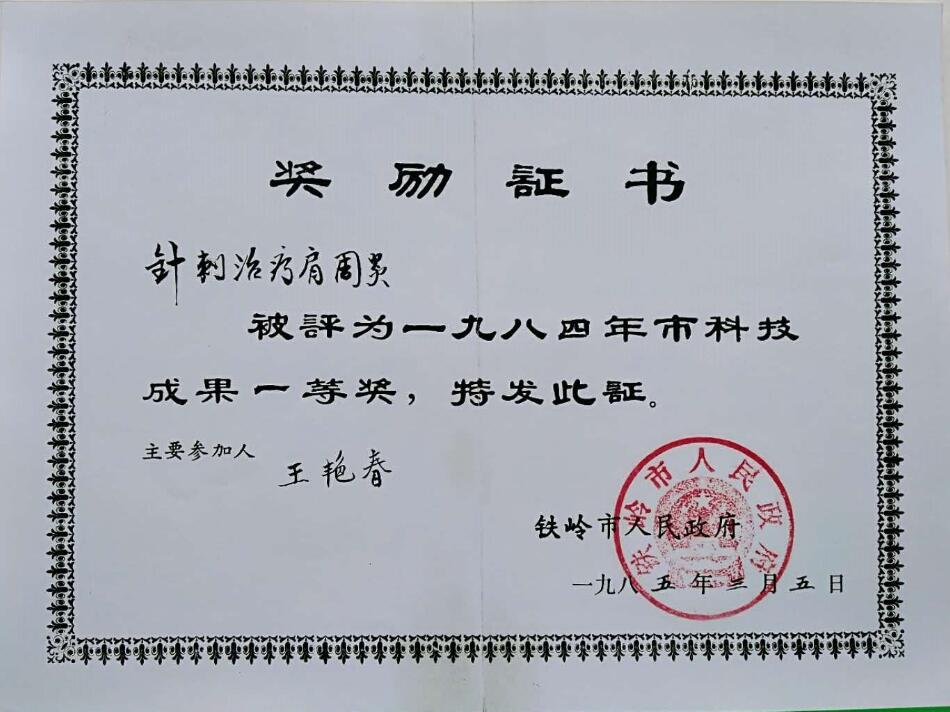 奖励証书
针刺治疗肩周炎
被評为一九八四年市科技
成果一等奖，特发此証。
主要参加人
王艳春
铁岭市人民政府
铁岭市人民政府
一九八五年三月五日